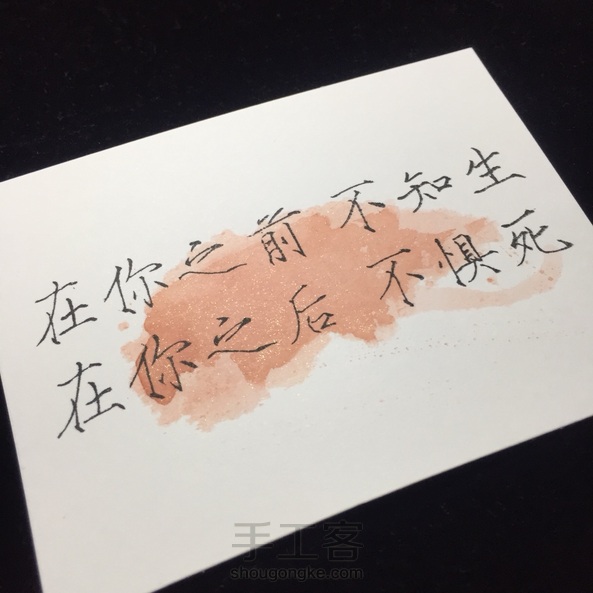 在你之前 不知生
在你之后 不惧死
手工客
shougongke.com